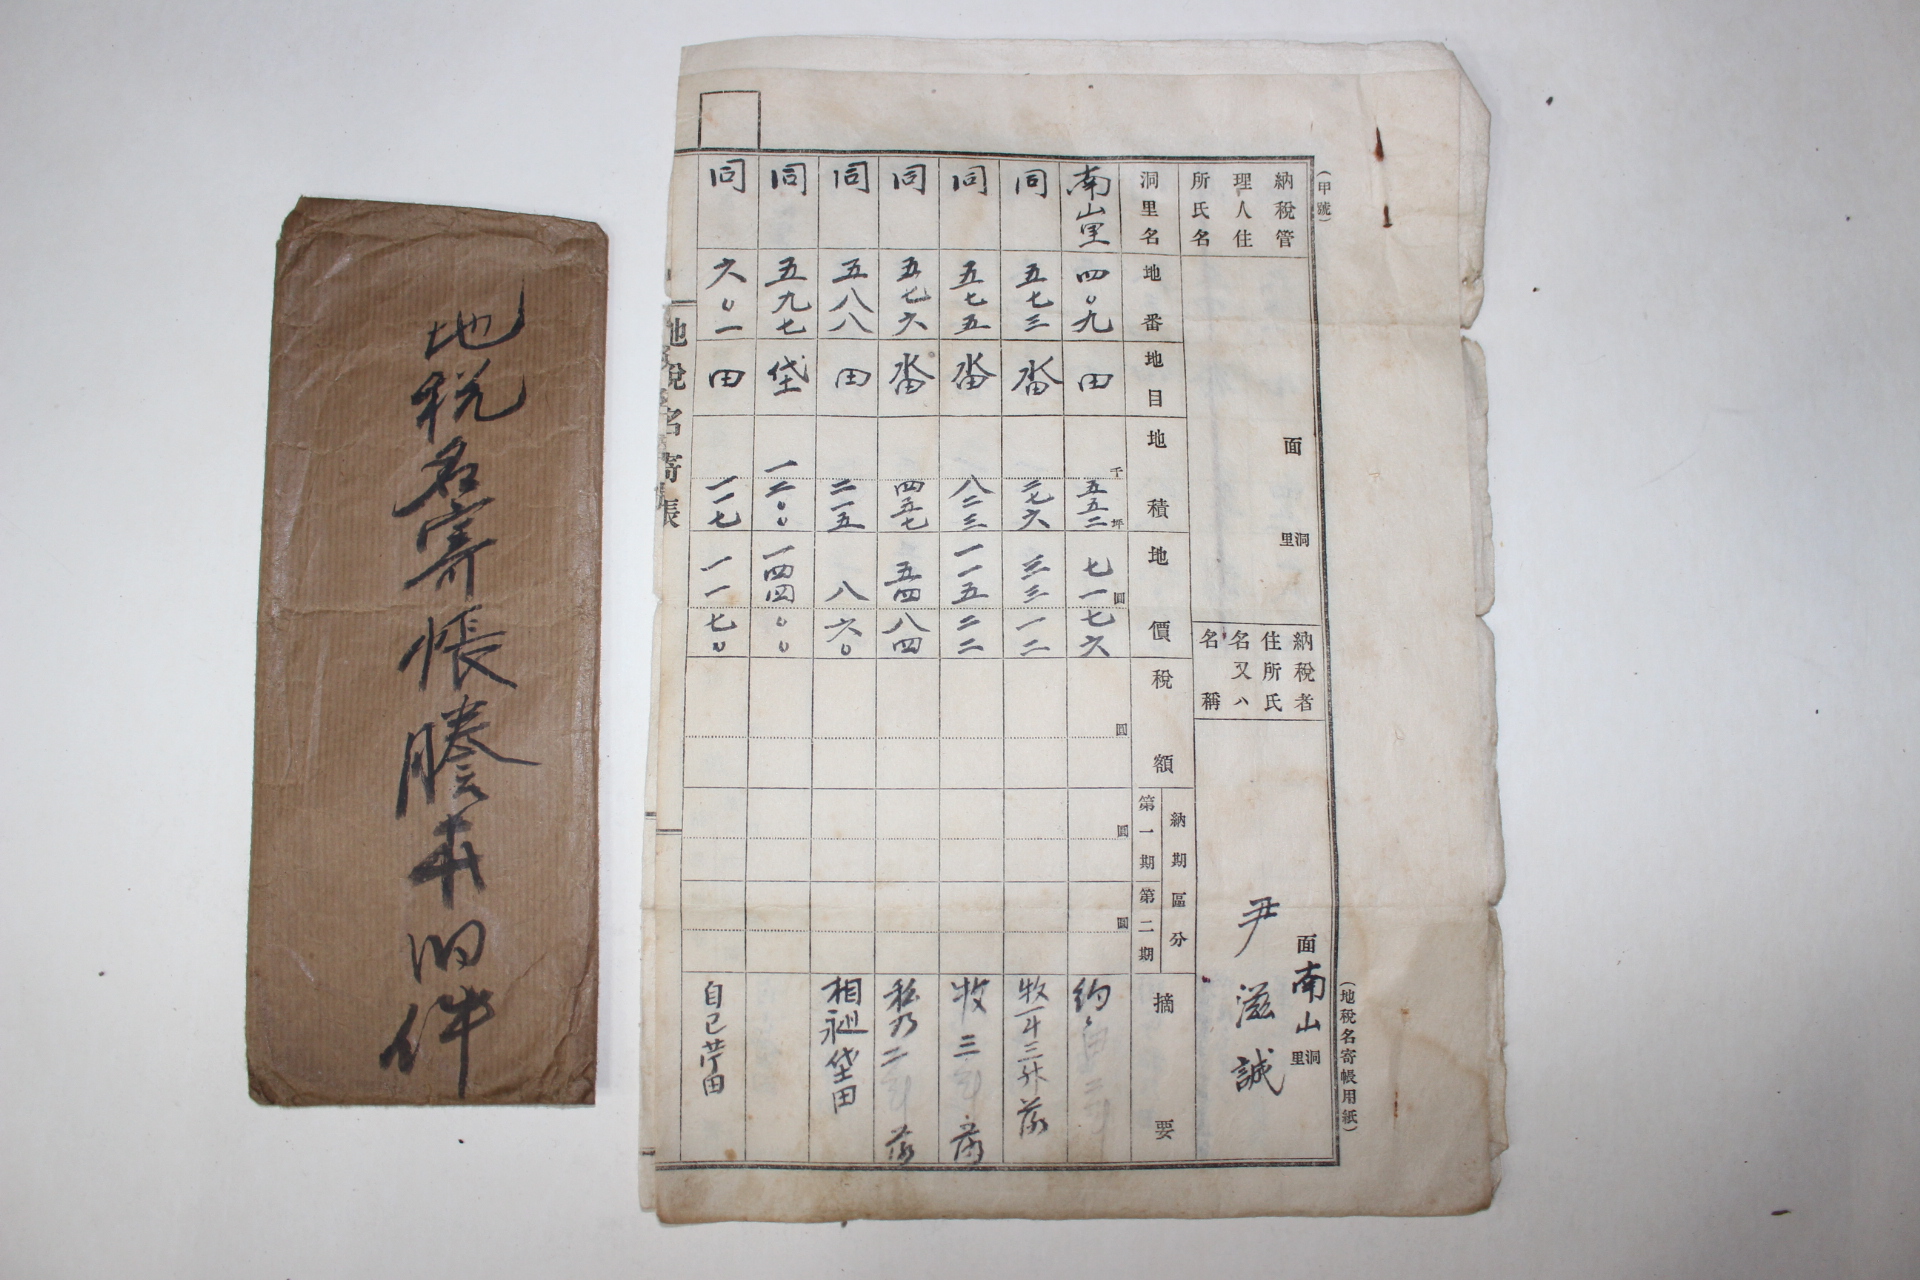 地税名寄帳謄本旧件
(甲號)
(地稅名寄帳用紙)
納稅管
理人住
所氏名
面
洞里
納稅者
住所氏
名又ハ
名稱
面 南山 洞里
尹滋誠
洞里名 地番 地目 地積 地價 稅額 納期區分 第一期 第二期 摘要
南山里 四〇九 田 千 五五二 坪 七一 圓 七六 圓 圓 圓
同 五七三 畓 二七六 三三一二 牧一斗三升落
同 五七五 畓 八二三 一一五二二 牧三斗落
同 五七六 畓 四五七 五四八四 二斗落
同 五八八 田 二一五 八六〇 垈田
同 五九七 垈 一二〇〇 一四四〇〇
同 六〇一 田 一一七 一一七〇 自己 田
地稅名寄帳